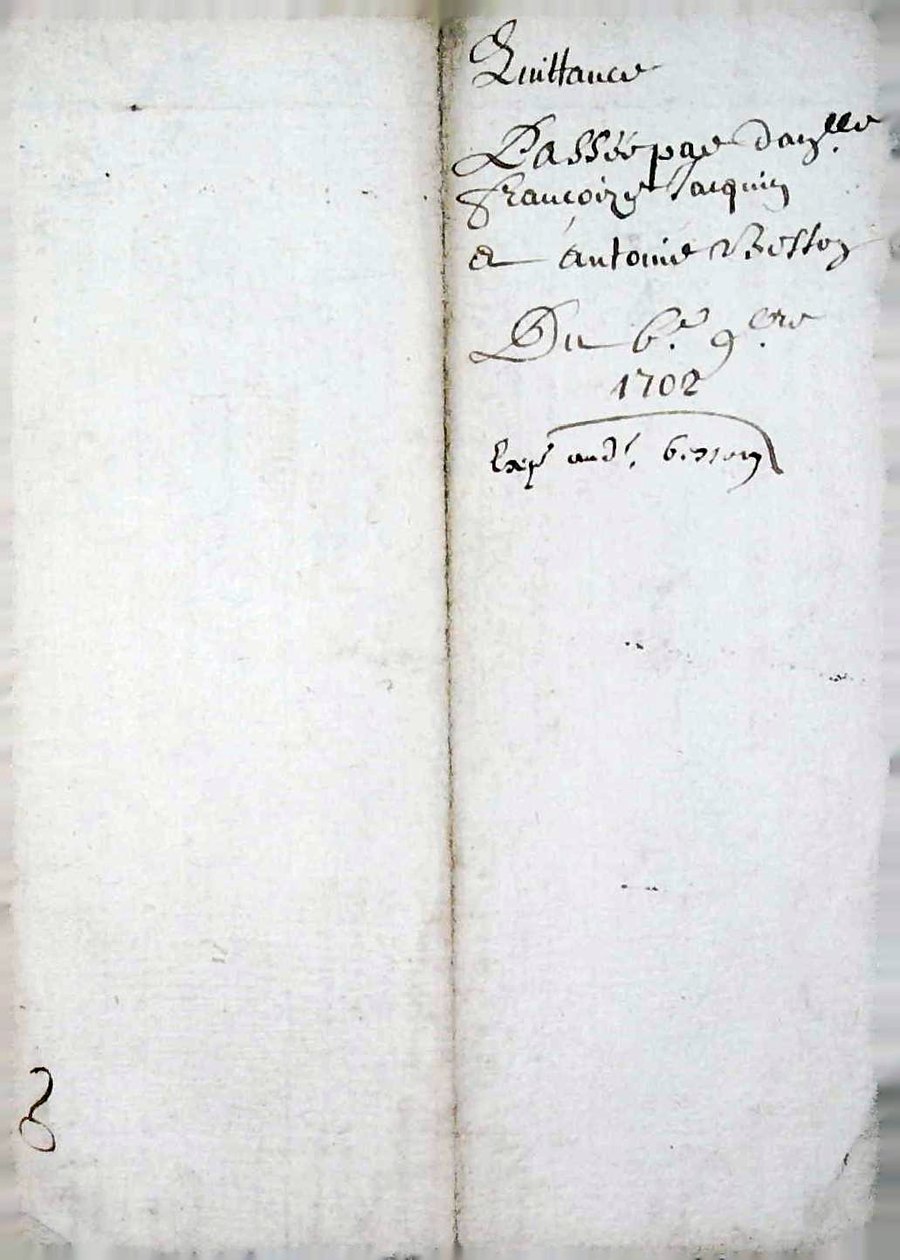 Quittance
Passée par Dam.lle
françoize Jacquin
a antoine Besson
Du 6.e 9.bre
1702
Exp. aud.t besson